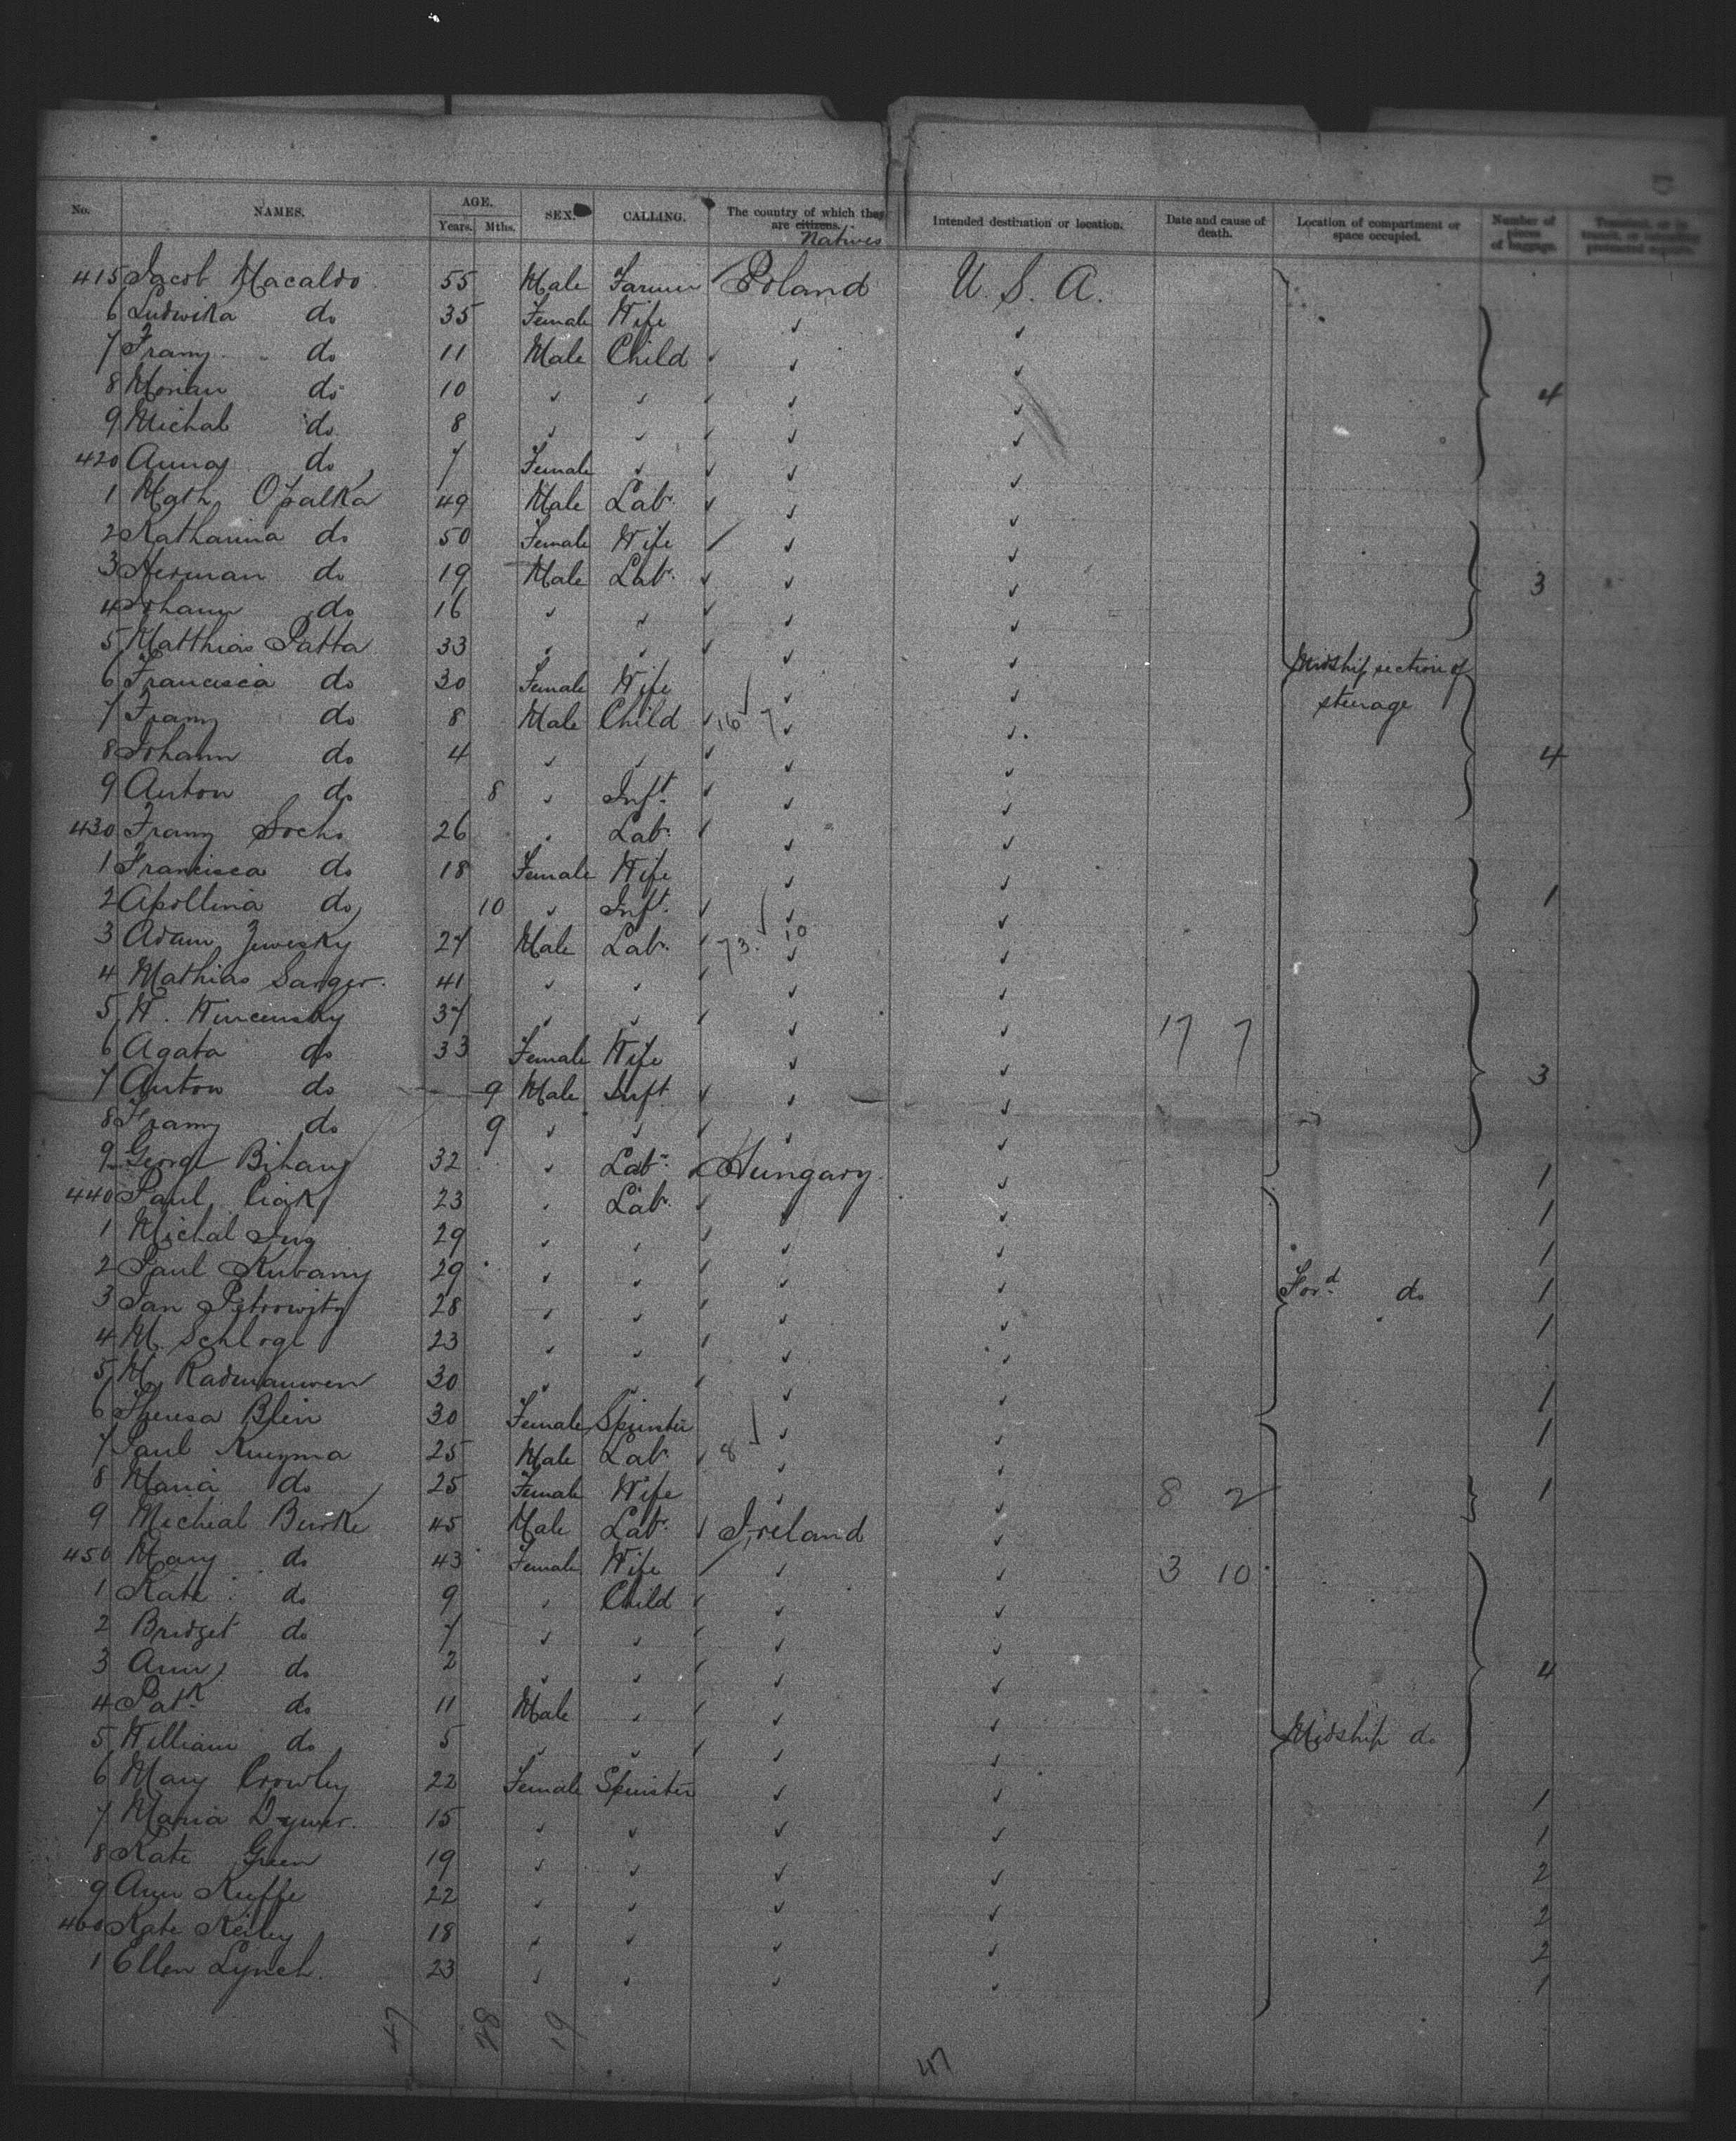 No. NAMES. AGE. SEX. CALLING. The country of which they are citizens. Intended destination or location. Date and cause of death. Location of compartment or space occupied. Number of pieces of baggage.
Years. Mths. Natives
415 Jacob Macaldo 55 Male Farmer Poland U. S. A.
6 Ludwika do 35 Female Wife
7 Franz do 11 Male Child
8 Morian do 10 4
9 Michal do 8
420 Anna do 7 Female
1 Math Opalka 49 Male Lab.
2 Katharina do 50 Female Wife
3 Herman do 19 Male Lab. 3
4 Johann do 16
5 Matthias Patta 33 Midship section of
6 Francisca do 30 Female Wife steerage
7 Franz do 8 Male Child 16 7
8 Johann do 4 4
9 Anton do 8 Inft.
430 Franz Socha 26 Lab.
1 Francisca do 18 Female Wife
2 Apollina do 10 Inft. 1
3 Adam Zewisky 27 Male Lab. 73. 10
4 Mathias Sarger 41
5 W. Wincensky 37 17 7
6 Agata do 33 Female Wife
7 Anton do 9 Male Inft 3
8 Franz do 9
9 George Bihany 32 Lab. Hungary 1
440 Paul Cigk 23 Lab. 1
1 Michal 29 1
2 Paul Kubany 29 Ford do 1
3 Jan Petrowitz 28 1
4 M. Schlogl 23
5 M. Radmanwen 30 1
6 Theresa Blein 30 Female Spinster 1
7 Paul Kuzma 25 Male Lab 8
8 Maria do 25 Female Wife 8 2 1
9 Micheal Burke 45 Male Lab. Ireland
450 Mary do 43 Female Wife 3 10
1 Kate do 9 Child
2 Bridget do 7
3 Ann do 2 4
4 Patk do 11 Male
5 William do 5 Midship do
6 Mary Crowley 22 Female Spinster 1
7 Maria Dywer 15 1
8 Kate Green 19 2
9 Ann Keeffe 22 2
460 Kate Keiley 18 2
1 Ellen Lynch. 23 1
47 28 19 47